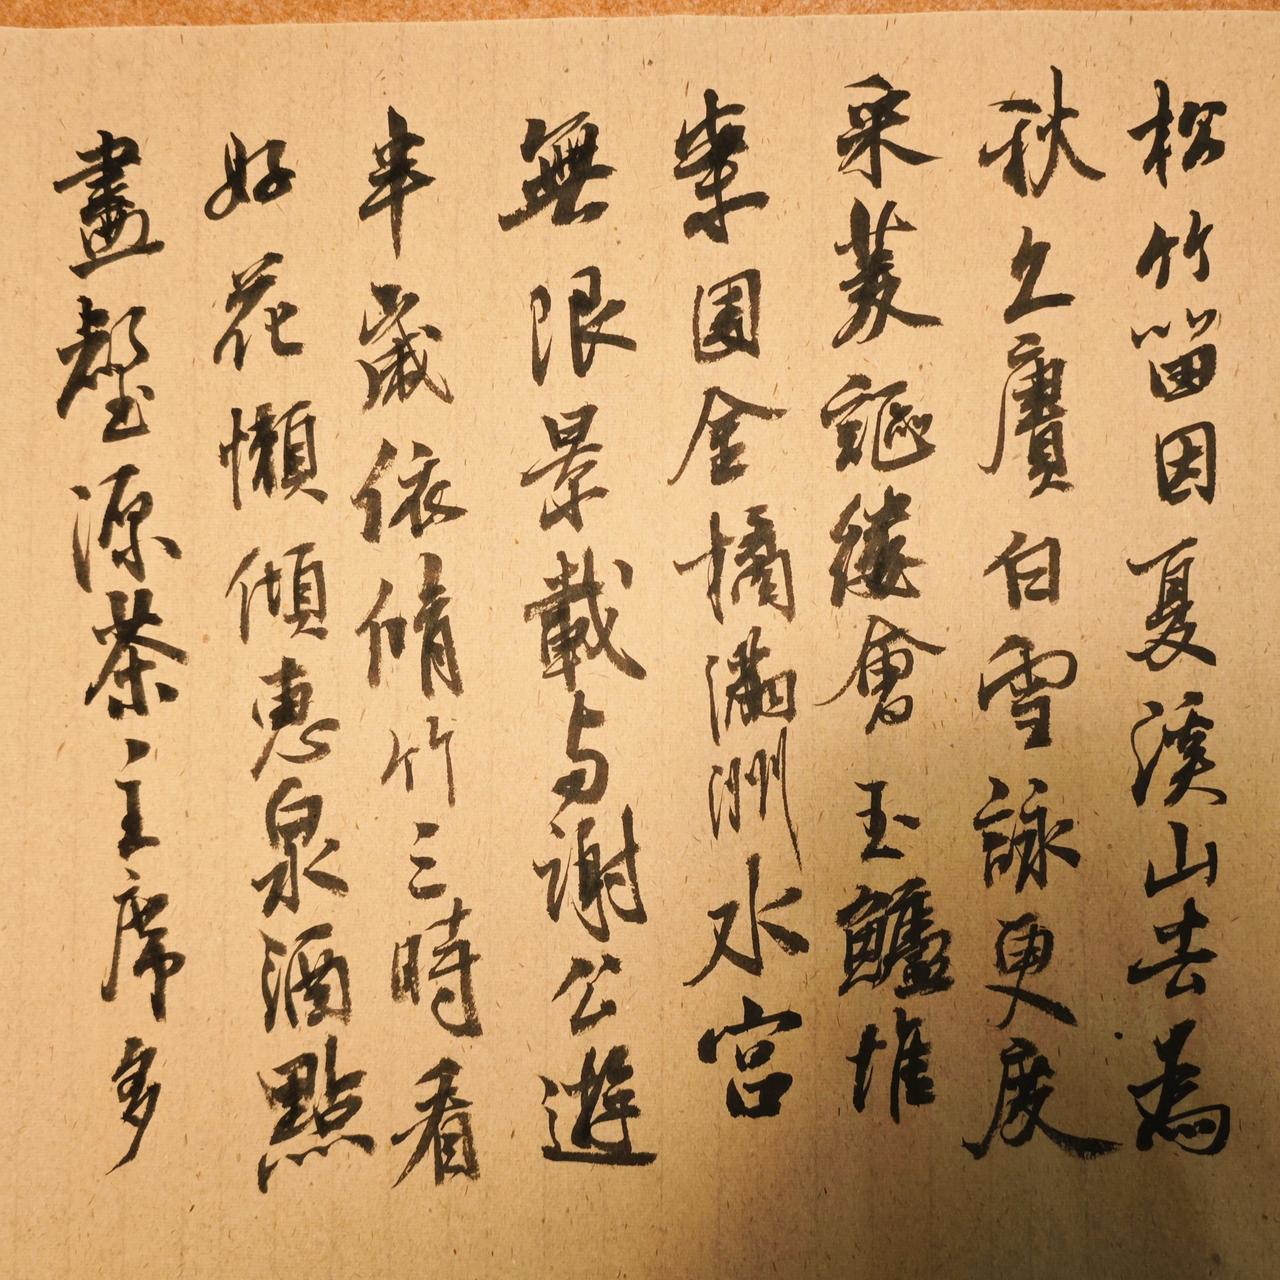 松竹留因夏溪山去為
秋久賡白雪詠更度
采菱謳縷會玉鱸堆
案團金橘滿洲水宮
無限景載与謝公遊
半歲依脩竹三時看
好花懶傾惠泉酒點
盡壑源茶主席多